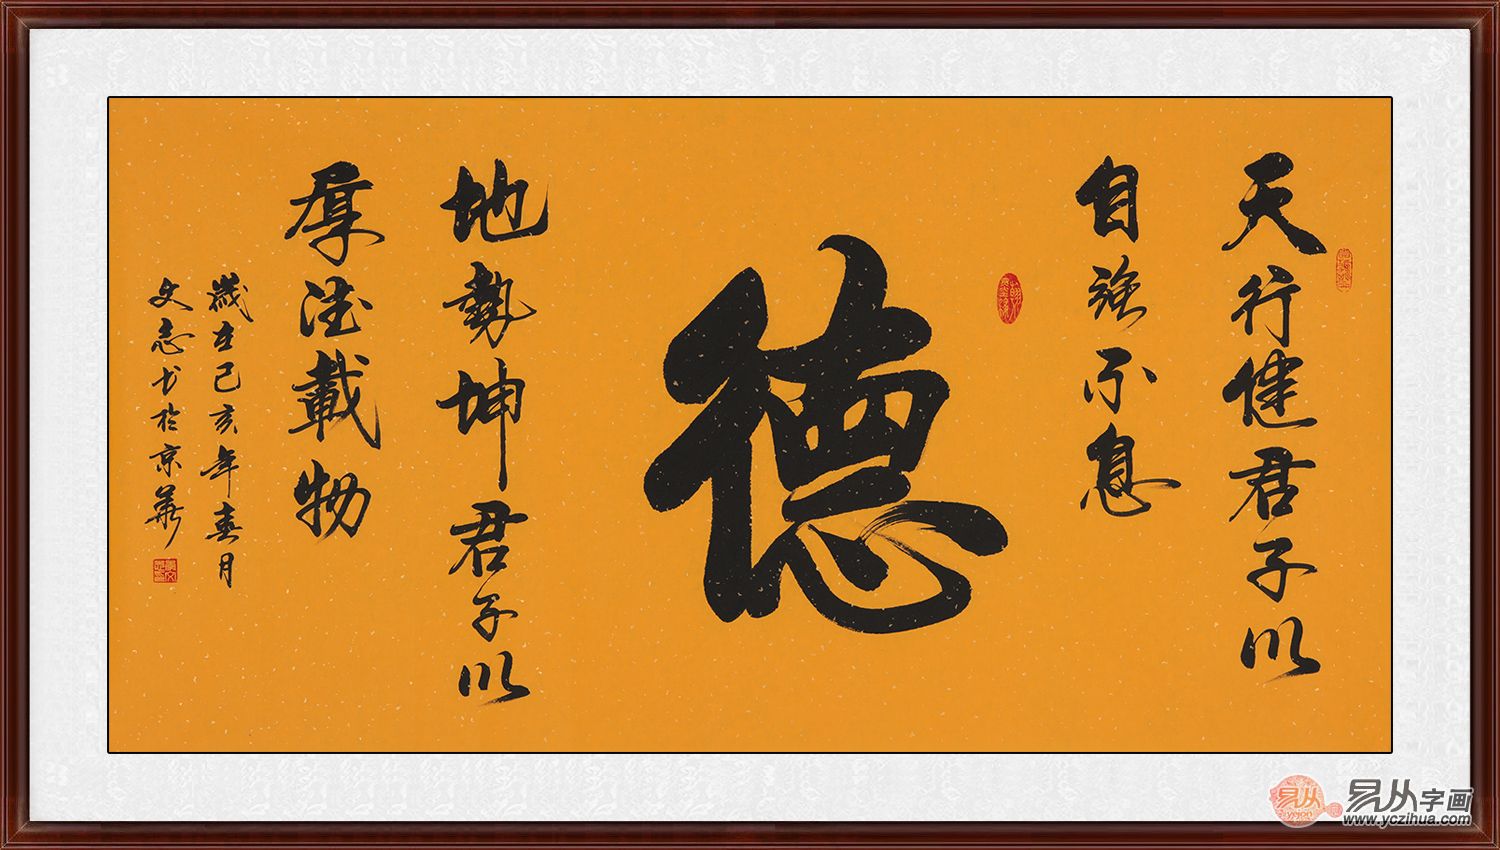 天行健君子以
自強不息
德
地勢坤君子以
厚德載物
歲在己亥年春月
文志书於京華
易从字画
www.yczihua.com